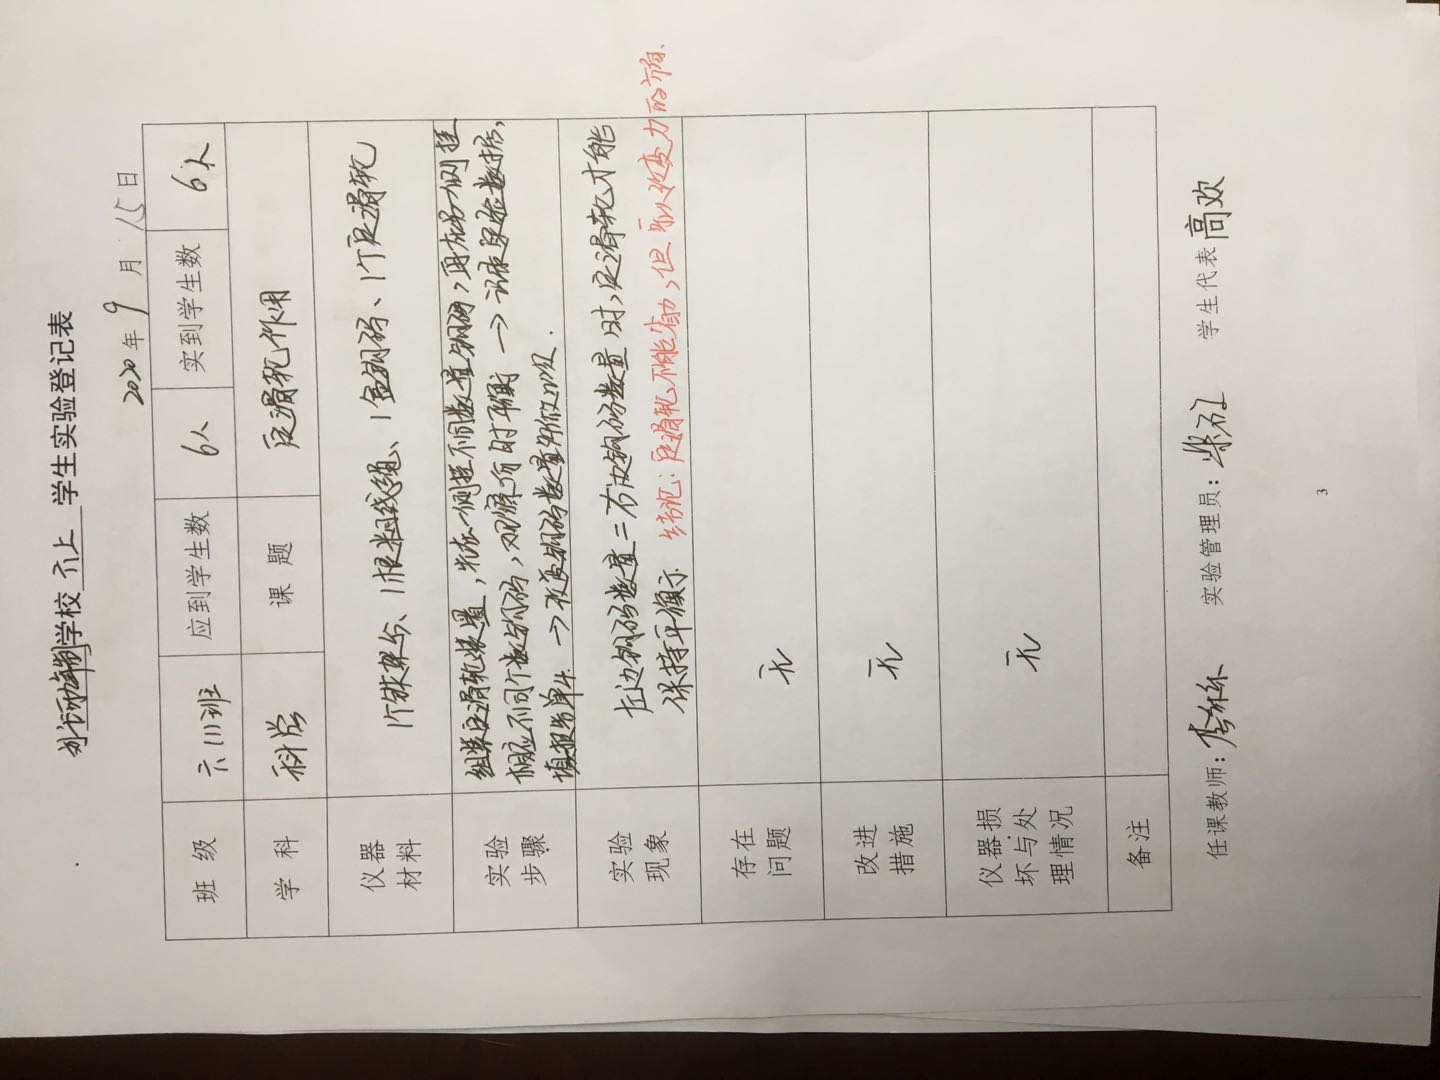 学校 六上 学生实验登记表
2020年 9 月 15 日
班 级 六(1)班 应到学生数 6人 实到学生数 6人
学 科 科学 课 题 定滑轮作用
仪器
材料
1个铁架台、1根粗线绳、1盒钩码、1个定滑轮
实验
步骤
组装定滑轮装置,先在一侧挂不同数量钩码,再在另一侧挂
相应不同个数钩码,观察何时平衡→记录实验数据,
填报告单.→改变钩码数量再做几次.
实验
现象
左边钩码数量=右边钩码数量时,定滑轮才能
保持平衡
结论:定滑轮不能省力,但可以改变力的方向.
存在
问题
无
改进
措施
无
仪器损
坏与处
理情况
无
备注
任课教师: 实验管理员: 学生代表 高欢
3